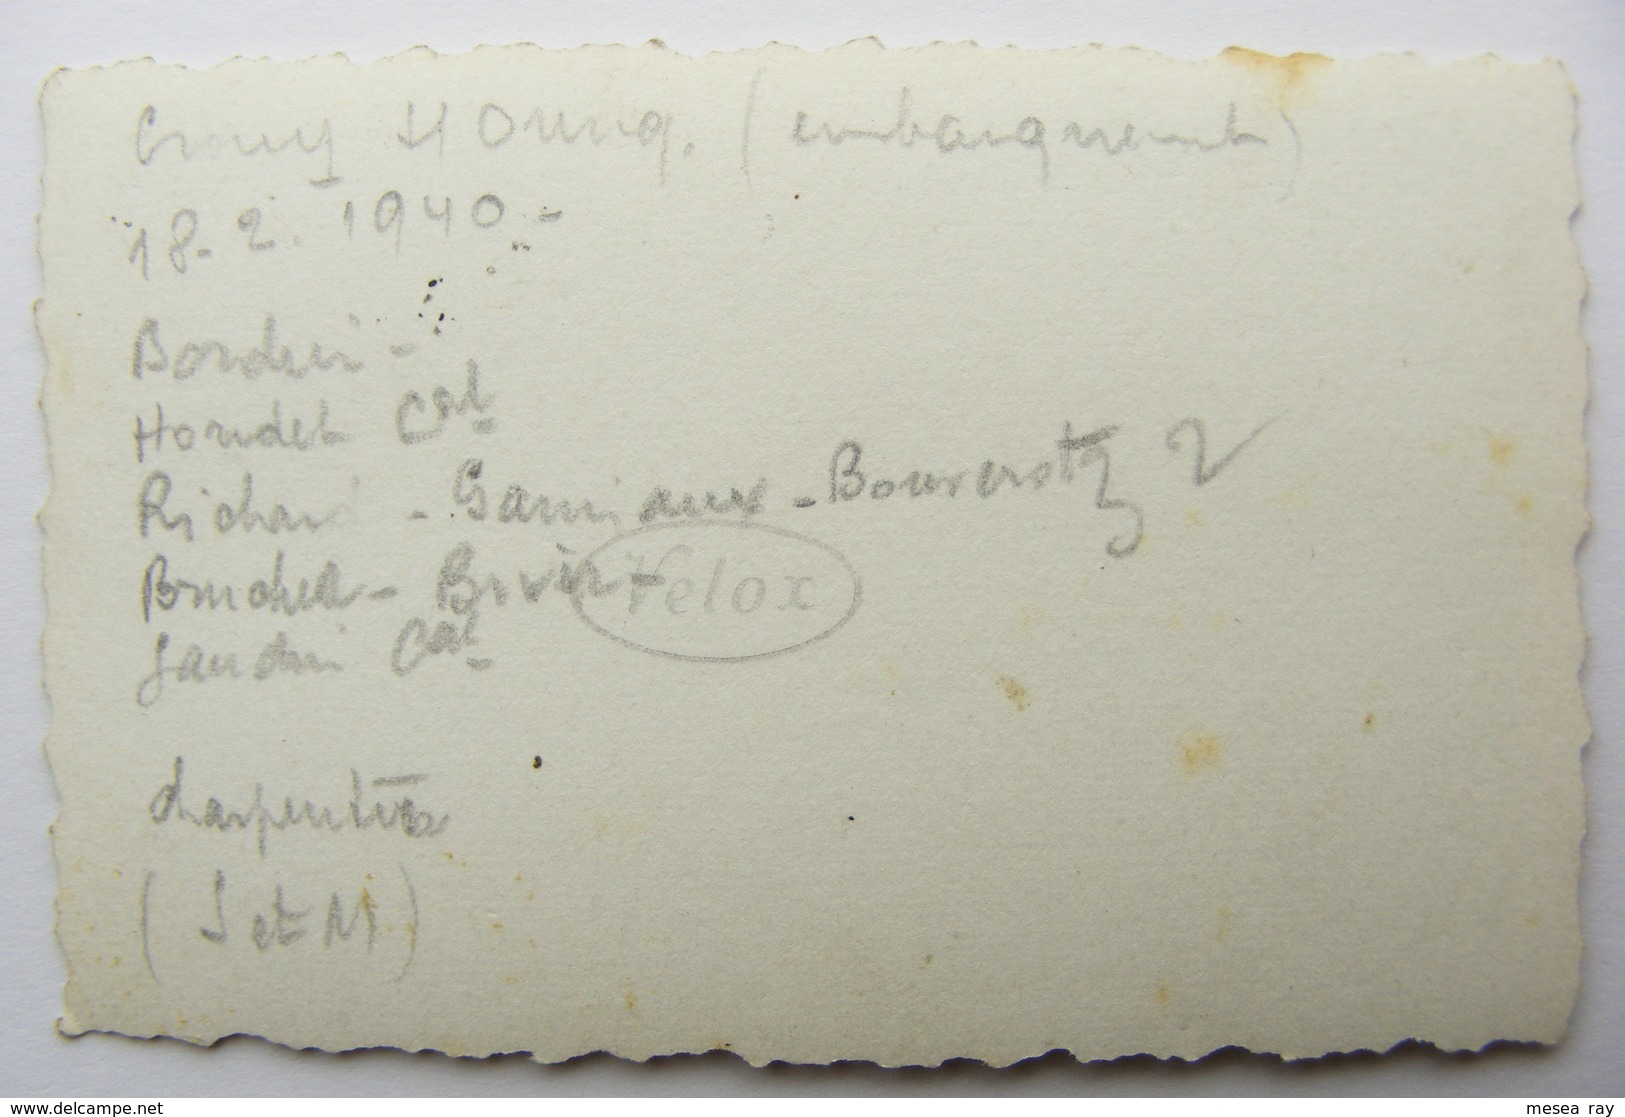 Crouy H Ourcq. (embarquement)
18-2. 1940-
Bordier-
Houdet Cal
Richard - Garniaux - Bouverot 2
Bruchet - Brvin
Velox
Gaudin Cal
charpentier
(S et M)
www.delcampe.net
mesea ray